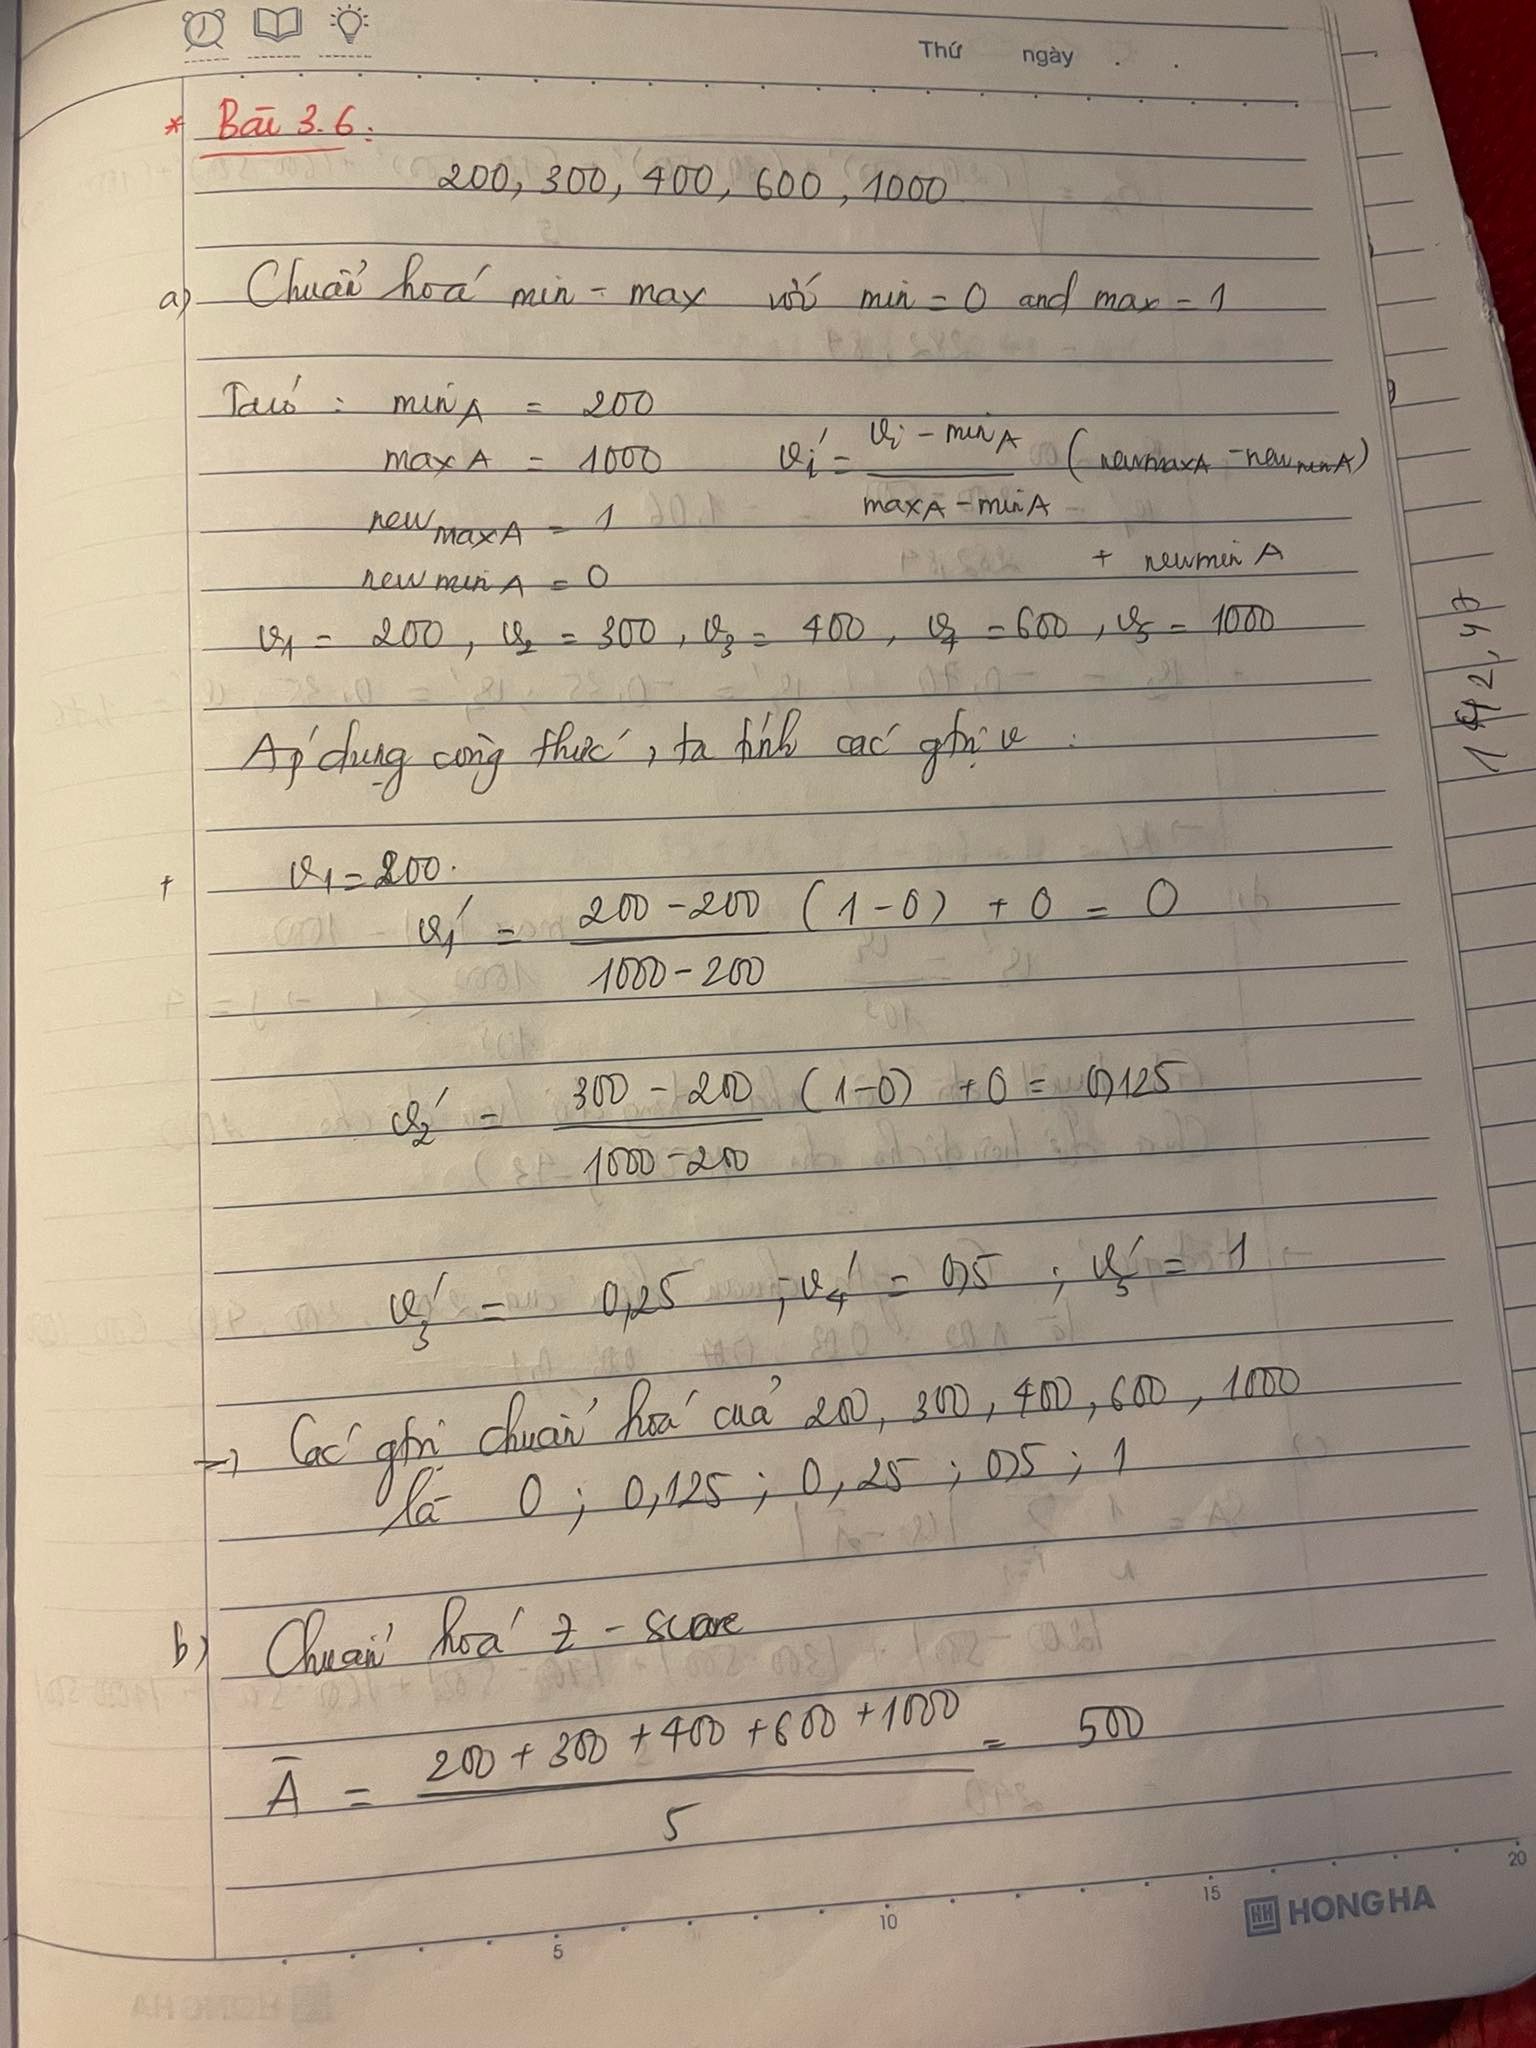 Thứ ngày . .
* Bài 3.6:
200, 300, 400, 600, 1000
a) Chuẩn hoá min - max với min = 0 and max = 1
Ta có : minA = 200
maxA = 1000 vi' = (vi - minA) / (maxA - minA) (newmaxA - newminA)
newmaxA = 1 + newminA
newminA = 0
v1 = 200, v2 = 300, v3 = 400, v4 = 600, v5 = 1000
Áp dụng công thức, ta tính các gtrị v :
+ v1 = 200.
v1' = (200 - 200) / (1000 - 200) (1 - 0) + 0 = 0
v2' = (300 - 200) / (1000 - 200) (1-0) + 0 = 0,125
v3' = 0,25 ; v4' = 0,5 ; v5' = 1
→ Các gtri chuẩn hoá của 200, 300, 400, 600, 1000
là 0 ; 0,125 ; 0,25 ; 0,5 ; 1
b) Chuẩn hoá z - score
Ā = (200 + 300 + 400 + 600 + 1000) / 5 = 500
5 10 15 20
HH HONG HA